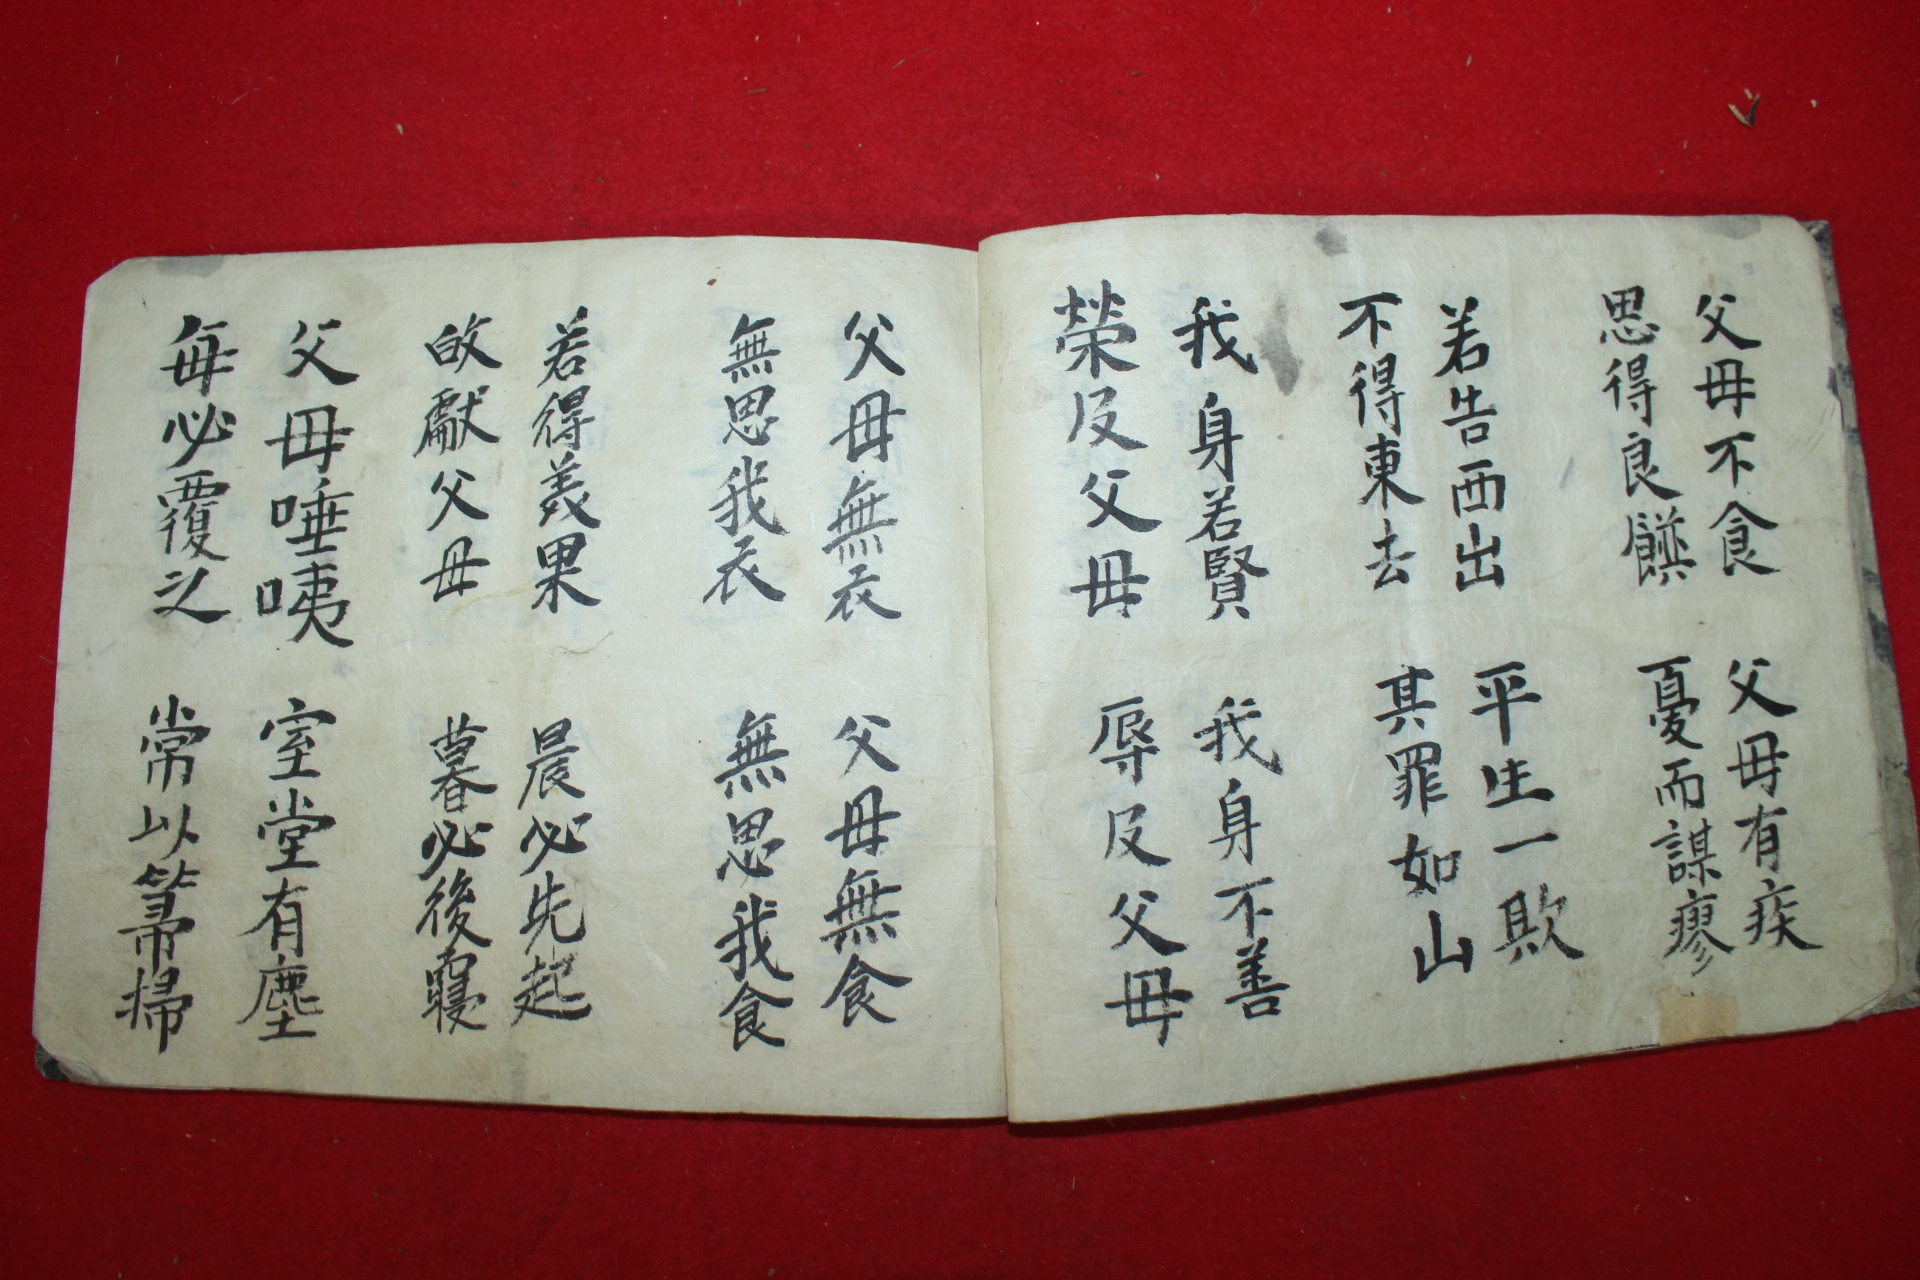 父母不食
思得良饌
父母有疾
憂而謀瘳
若告西出
不得東去
平生一欺
其罪如山
我身若賢
榮及父母
我身不善
辱及父母
父母無衣
無思我衣
父母無食
無思我食
若得美果
皈獻父母
晨必先起
暮必後寢
父母唾咦
每必覆之
室堂有塵
常以箒掃